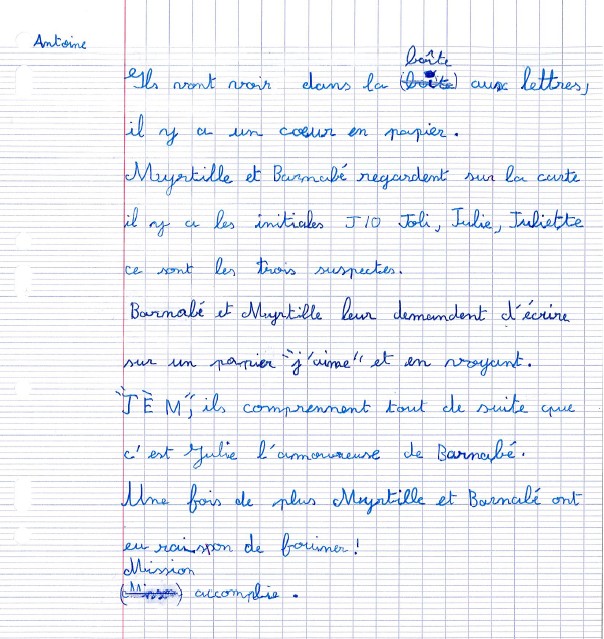 Antoine
boîte
Ils vont voir dans la (boîte) aux lettres,
il y a un coeur en papier.
Myrtille et Barnabé regardent sur la carte
il y a les initiales J10 Joli, Julie, Juliette
ce sont les trois suspectes.
Barnabé et Myrtille leur demandent d'écrire
sur un papier "j'aime" et en voyant.
"J È M", ils comprennent tout de suite que
c'est Julie l'amoureuse de Barnabé.
Une fois de plus Myrtille et Barnabé ont
eu raison de fouiner!
Mission
accomplie.